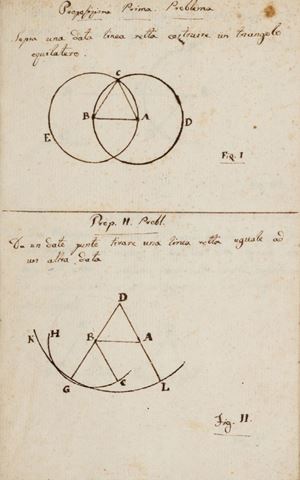 Proposizione Prima. Problema
sopra una data linea retta costruire un triangolo
equilatero.
C
B A
E D
Fig. I
Prop. II. Probl.
Da un dato punto tirare una linea retta uguale ad
un altra data
D
K H B A
G C L
Fig. II.